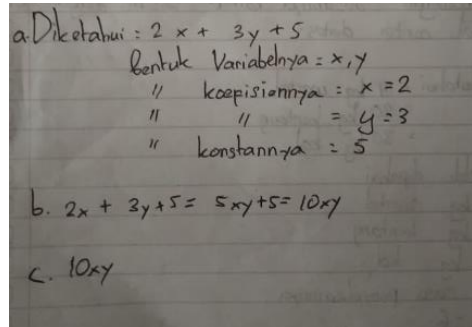 a. Diketahui : 2x + 3y + 5
Bentuk Variabelnya = x, y
" koepisiennya : x = 2
" " = y = 3
" konstannya : 5
b. 2x + 3y + 5 = 5xy + 5 = 10xy
c. 10xy